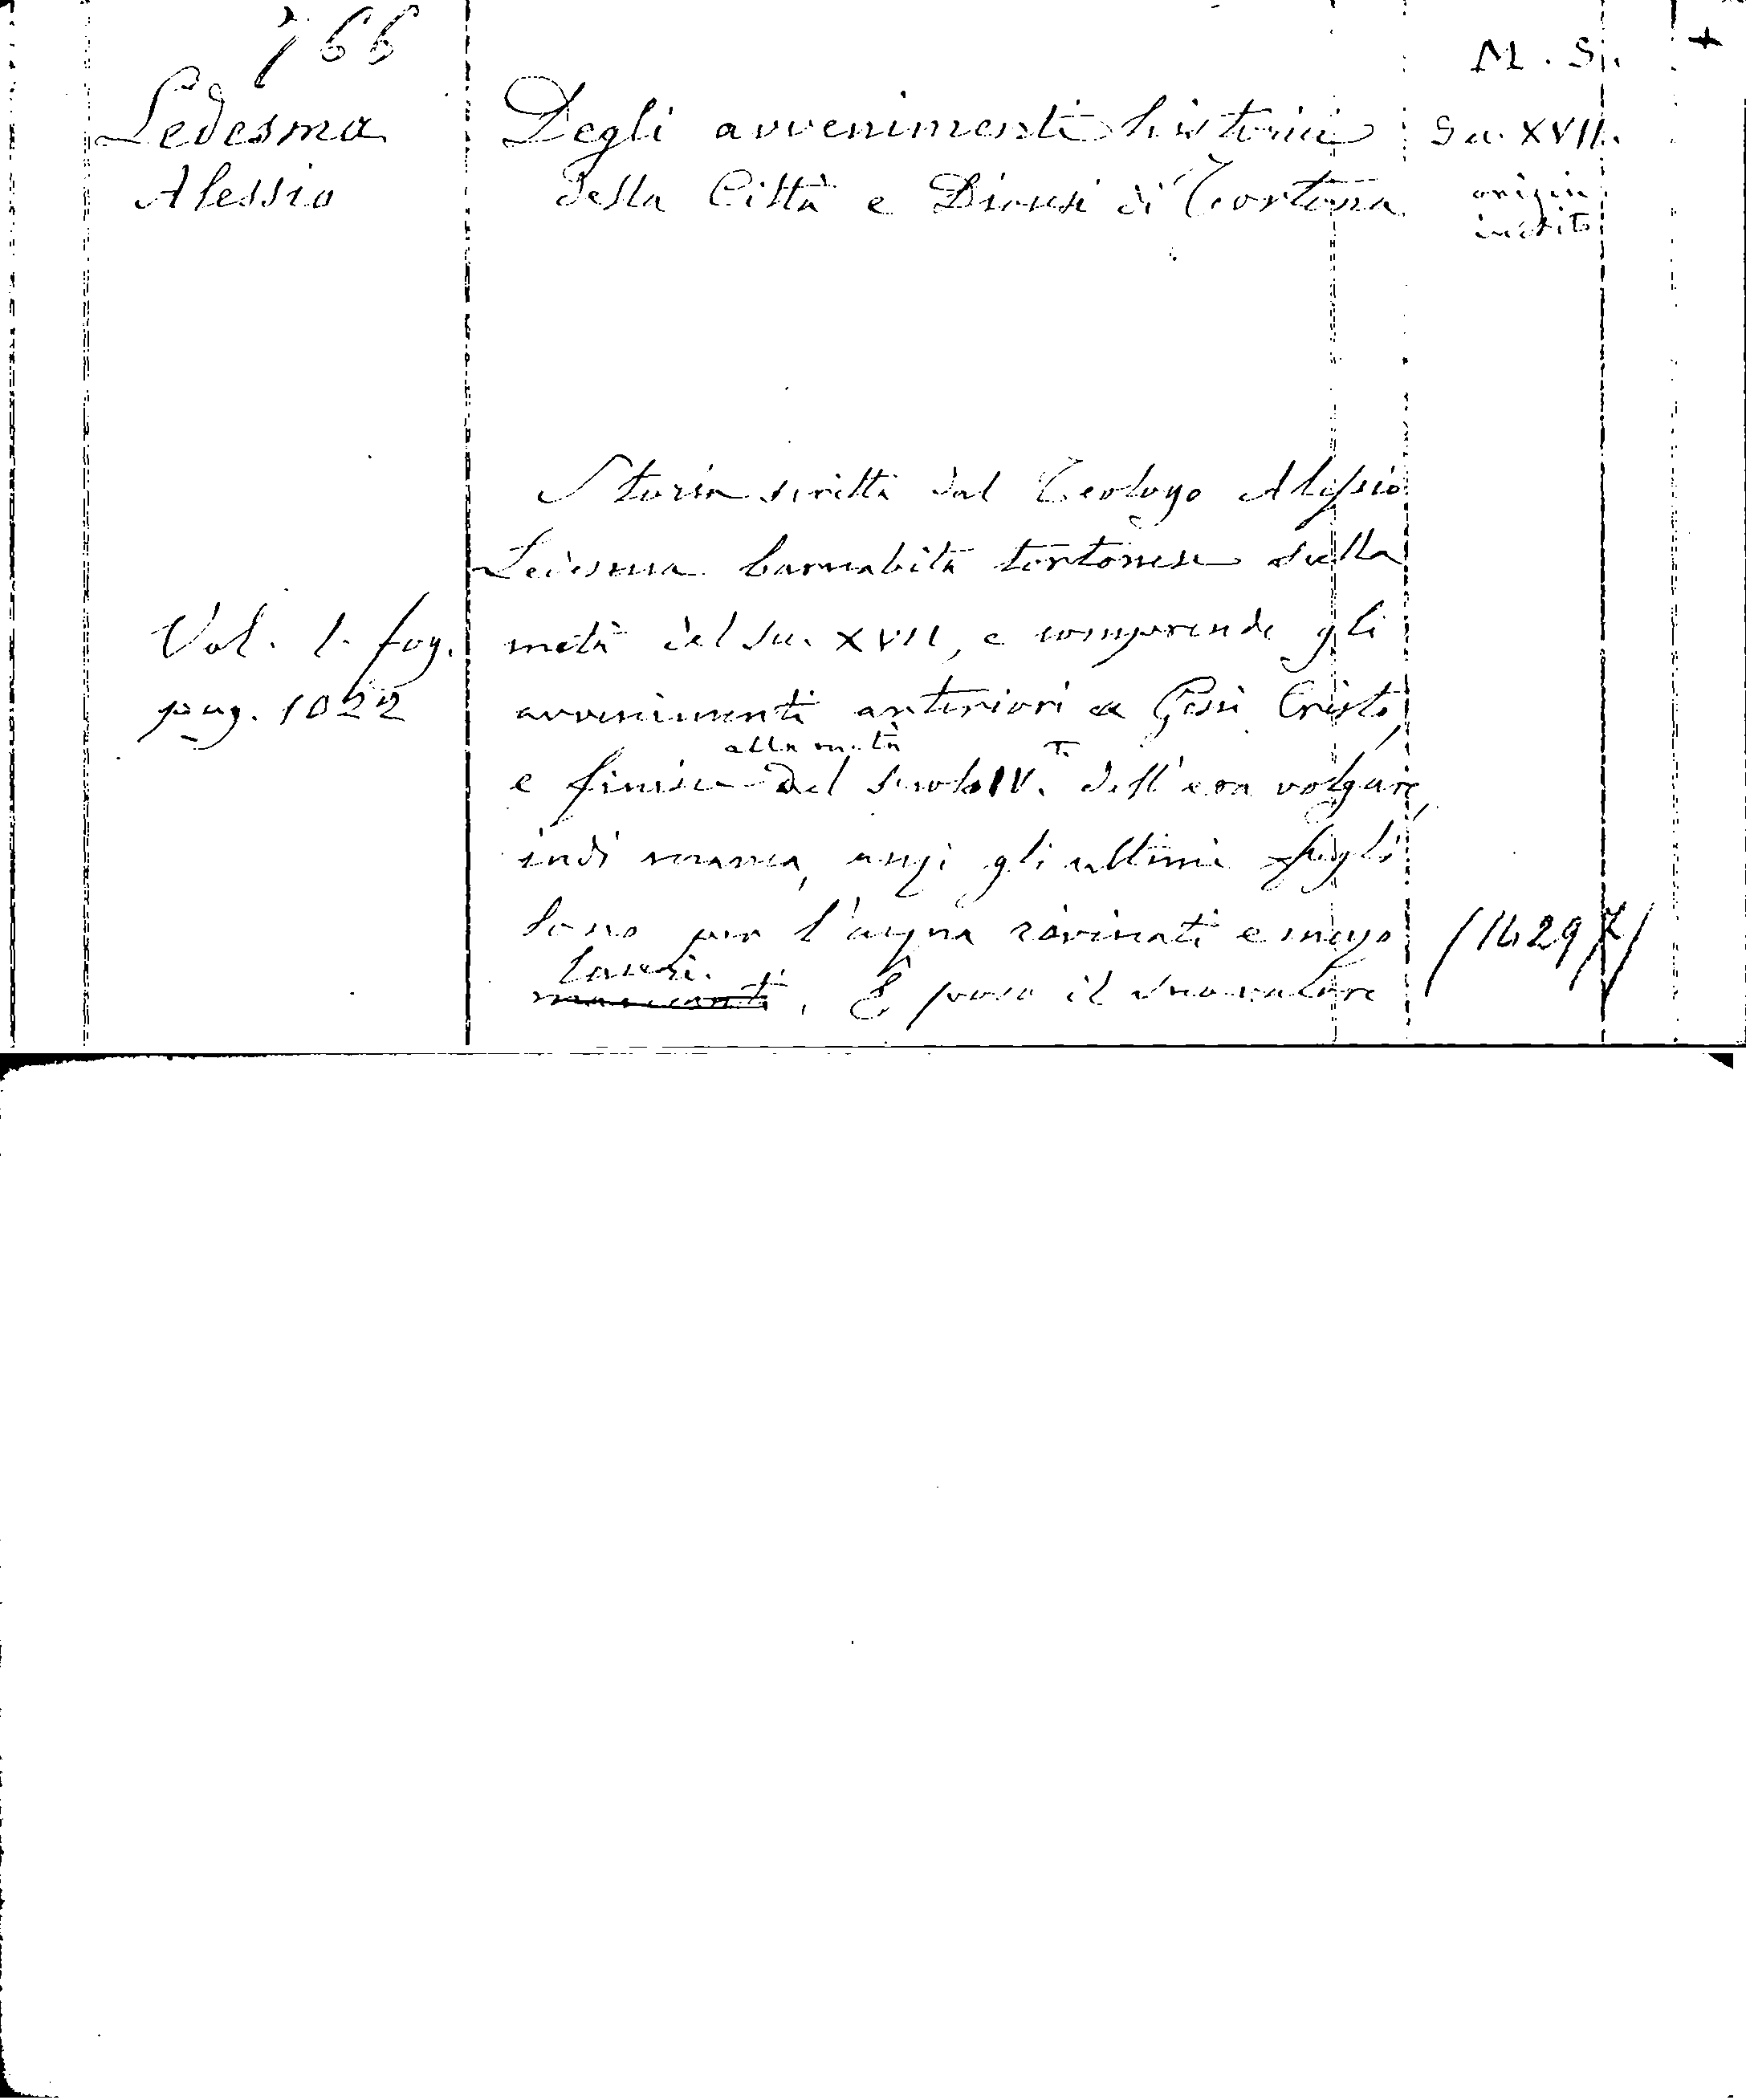 766
M. S. +
Ledesma
Alessio
Degli avvenimenti historici
della Città e Diocesi di Tortona
Sec. XVII.
origin.
inedito
Storia scritta dal Teologo Alessio
Ledesma barnabita tortonese sulla
metà del Sec. XVII, e comprende gli
avvenimenti anteriori a Gesù Cristo,
alla metà
e finisce del secolo IV. dell'era volgare,
indi manca, anzi gli ultimi fogli
sono per l'acqua rovinati e mezzo
laceri.
mancanti. È poco il suo valore
Vol. 1. fog.
pag. 1022
/14297/